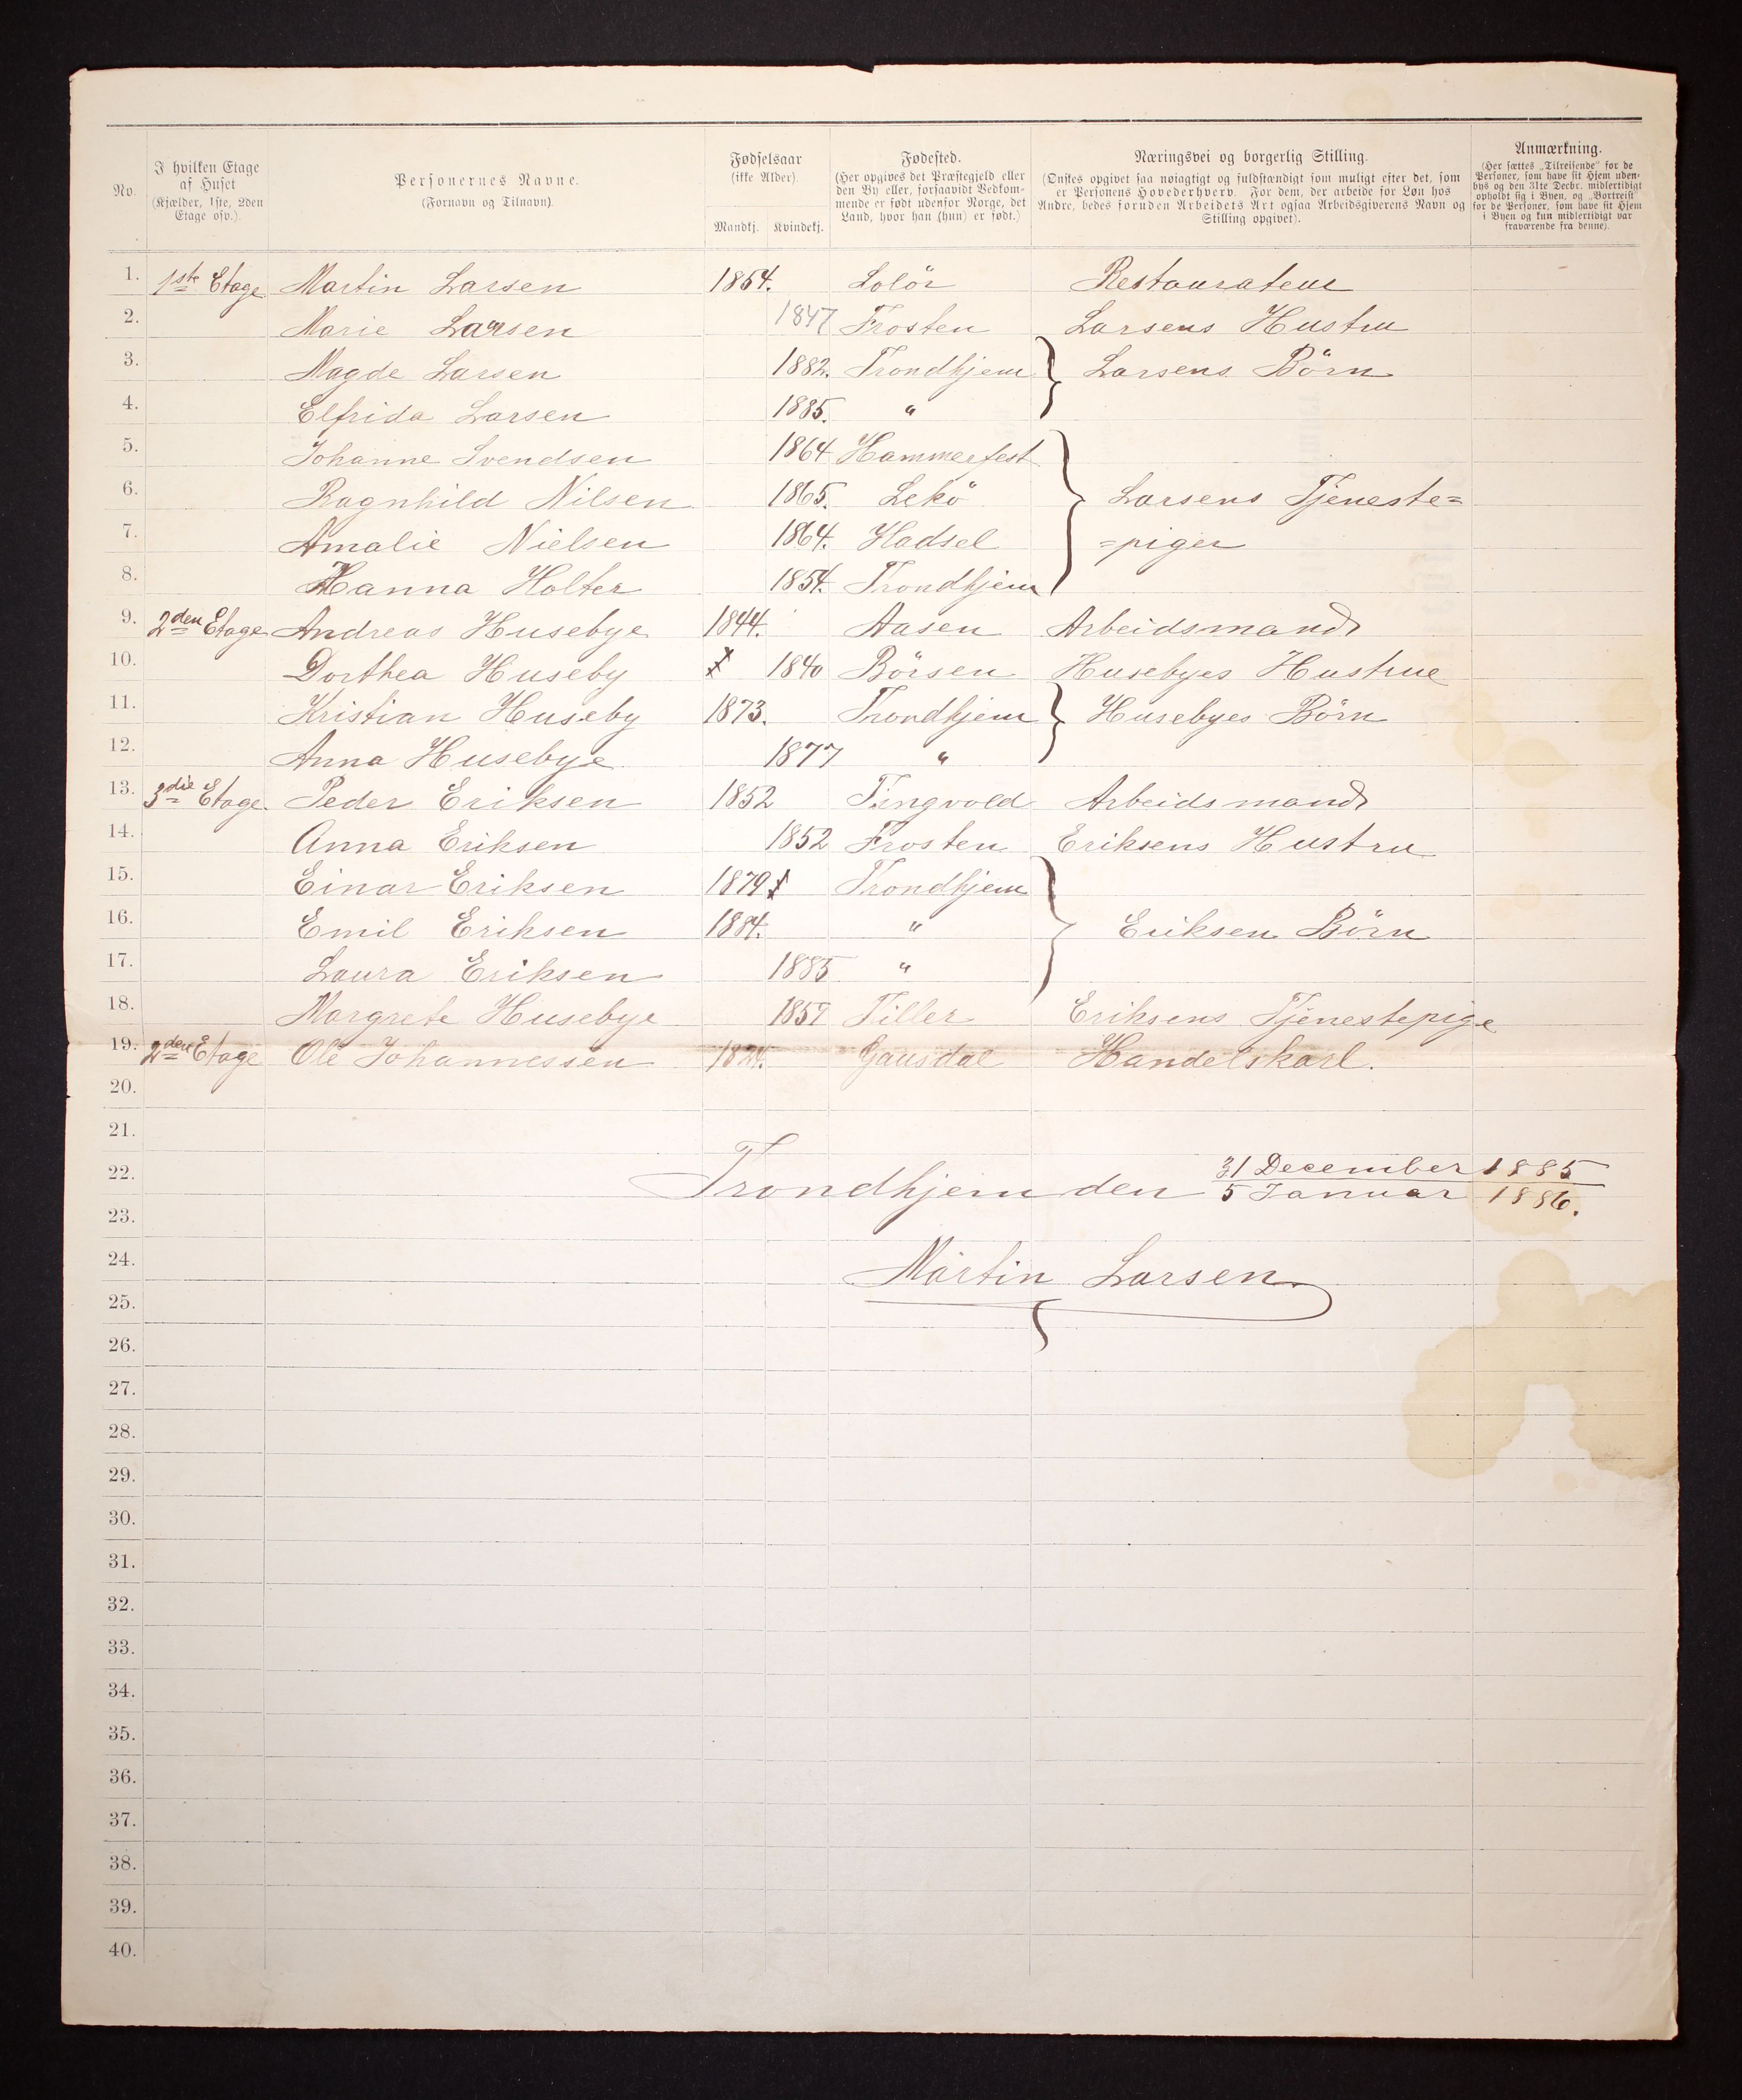 No.
I hvilken Etage
af Huset
(Kjælder, 1ste, 2den
Etage osv.).
Personernes Navne.
(Fornavn og Tilnavn).
Fødselsaar
(ikke Alder).
Mandkj. Kvindekj.
Fødested.
(Her opgives det Præstegjeld eller
den By eller, forsaavidt Vedkom-
mende er født udenfor Norge, det
Land, hvor han (hun) er født.)
Næringsvei og borgerlig Stilling.
(Ønskes opgivet saa nøiagtigt og fuldstændigt som muligt efter det, som
er Personens Hovederhverv. For dem, der arbeide for Løn hos
Andre, bedes foruden Arbeidets Art ogsaa Arbeidsgiverens Navn og
Stilling opgivet).
Anmærkning.
(Her sættes „Tilreisende" for de
Personer, som have sit Hjem uden-
bys og den 31te Decbr. midlertidigt
opholdt sig i Byen, og „Bortreist"
for de Personer, som have sit Hjem
i Byen og kun midlertidigt var
fraværende fra denne).
1. 1ste Etage Martin Larsen 1854. Solör Restaurateur
2. Marie Larsen 1847 Frosten Larsens Hustru
3. Magde Larsen 1882. Trondhjem } Larsens Börn
4. Elfrida Larsen 1885. "
5. Johanne Svendsen 1864 Hammerfest
6. Ragnhild Nilsen 1865. Lekö } Larsens Tjeneste=
7. Amalie Nielsen 1864. Hadsel =piger
8. Hanna Holter 1854. Trondhjem
9. 2den Etage Andreas Husebye 1844. Aasen Arbeidsmand
10. Dorthea Huseby 1840 Börsen Husebyes Hustrue
11. Kristian Huseby 1873. Trondhjem } Husebyes Börn
12. Anna Husebye 1877 "
13. 3die Etage Peder Eriksen 1852 Tingvold Arbeidsmand
14. Anna Eriksen 1852 Frosten Eriksens Hustru
15. Einar Eriksen 1879 Trondhjem
16. Emil Eriksen 1884. " } Eriksen Börn
17. Laura Eriksen 1885 "
18. Margrete Husebye 1857 Tiller Eriksens Tjenestepige
19. 2den Etage Ole Johannessen 1824. Gausdal Handelskarl.
20.
21.
22. Trondhjem den 31 December 1885
5 Januar 1886.
23.
24. Martin Larsen
25.
26.
27.
28.
29.
30.
31.
32.
33.
34.
35.
36.
37.
38.
39.
40.